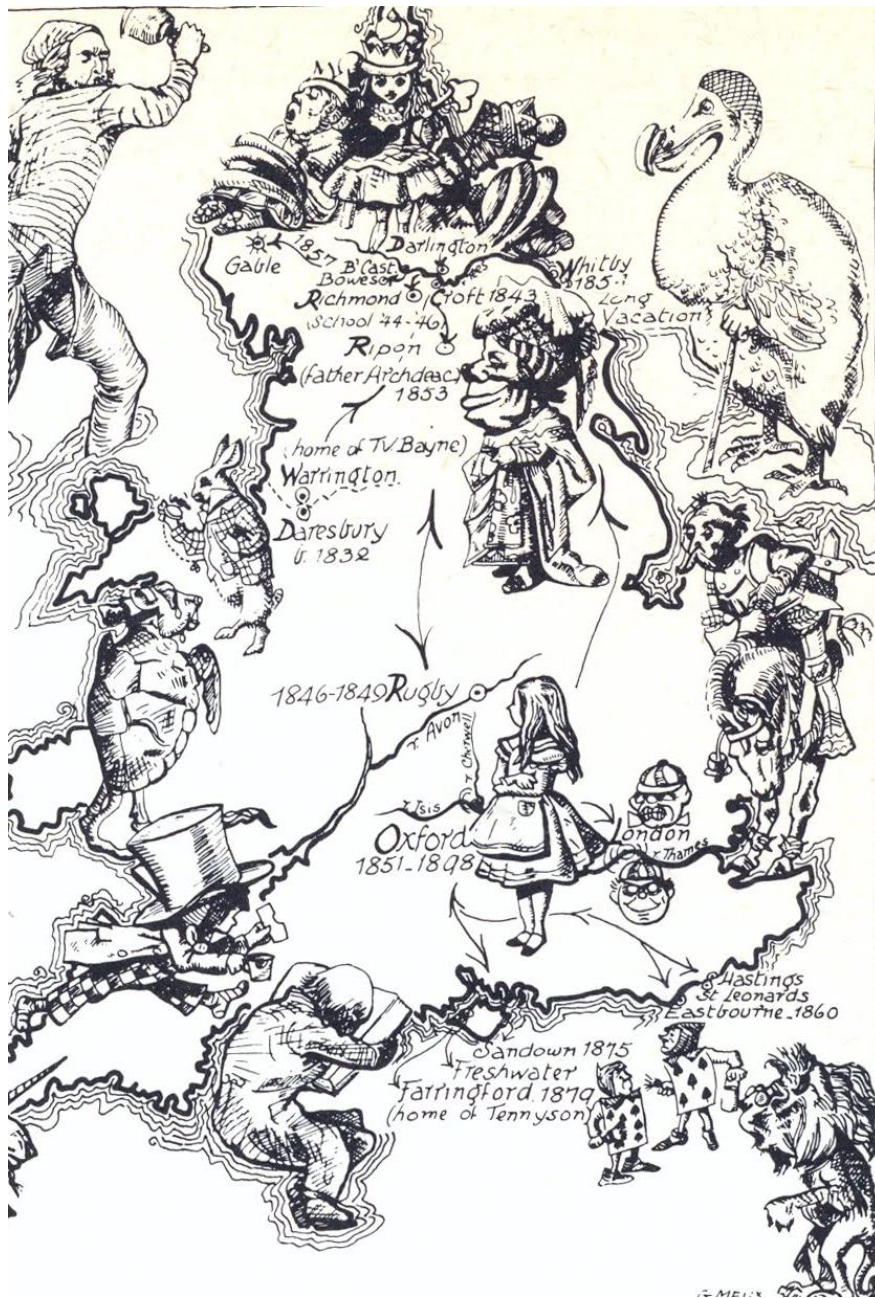 Darlington
1857
Gable
B'Cast.
Bowes
r. Tees
Whitby
185
Long
Vacation
Richmond
Croft 1843
(School '44-'46)
Ripon
(father Archdeac.)
1853
(home of T.V. Bayne)
Warrington.
Daresbury
b. 1832
1846-1849 Rugby
r. Avon
r. Cherwell
r. Isis
Oxford
1851-1898
London
r Thames
Hastings
St Leonards
Eastbourne-1860
Sandown 1875
Freshwater
Farringford. 1879
(home of Tennyson)